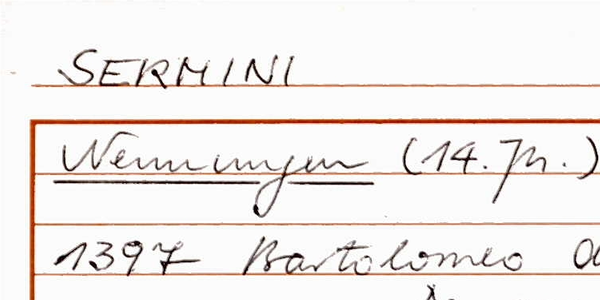 SERMINI
Nennungen (14. Jh.)
1397 Bartolomeo